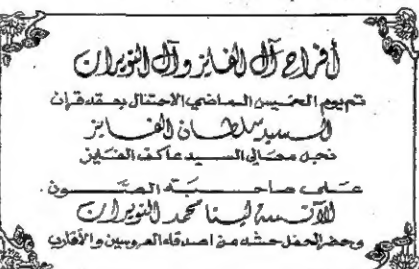 أفراح آل الفايز وآل النويران
تم يوم الخميس الماضي الاحتفال بعقد قران
السيد سلطان الفايز
نجل معالي السيد عاكف الفايز
على صاحبة الصون
الآنسة لينا محمد النويران
وحضر الحفل حشد من اصدقاء العروسين والأقارب